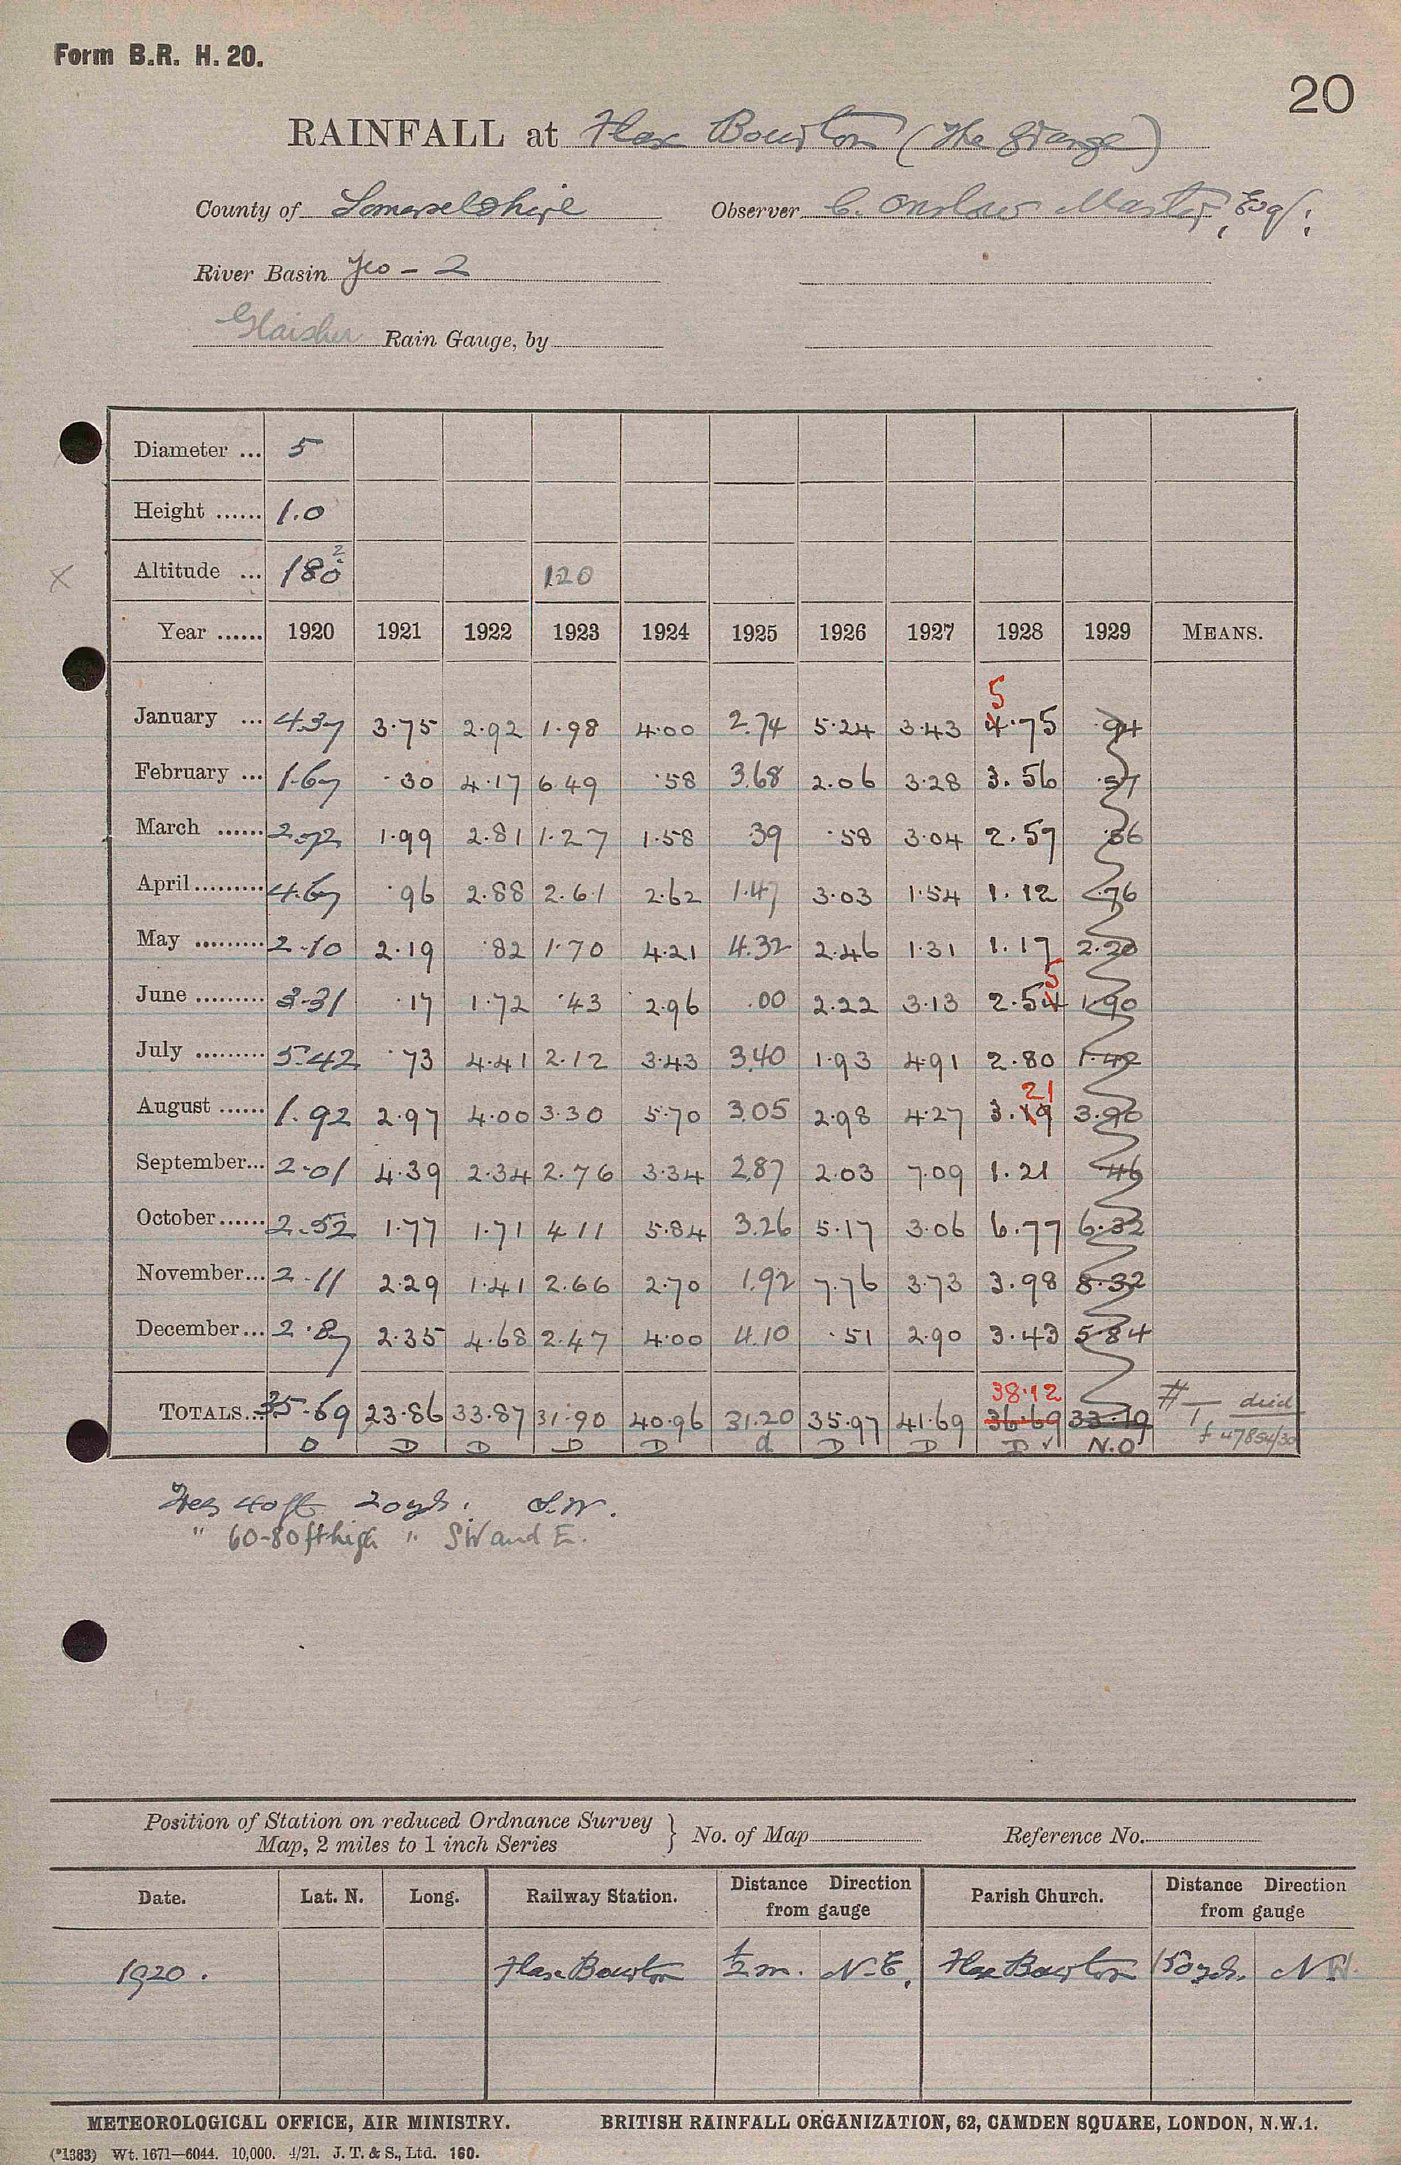 Form B.R. H. 20.
20
RAINFALL at Flax Bourton (The Grange)
County of Somersetshire Observer C. Onslow Master, Esq:
River Basin Yeo - 2
Glaisher Rain Gauge, by
Diameter ... 5
Height ...... 1.0
Altitude ... 180 2 120
Year ...... 1920 1921 1922 1923 1924 1925 1926 1927 1928 1929 MEANS.
January ... 4.37 3.75 2.92 1.98 4.00 2.74 5.24 3.43 4.75 5 .94
February ... 1.67 .30 4.17 6.49 .58 3.68 2.06 3.28 3.56 .57
March ...... 2.72 1.99 2.81 1.27 1.58 .39 .58 3.04 2.57 .86
April ......... 4.67 .96 2.88 2.61 2.62 1.47 3.03 1.54 1.12 .76
May ......... 2.10 2.19 .82 1.70 4.21 4.32 2.46 1.31 1.17 2.20
June ......... 3.31 .17 1.72 .43 2.96 .00 2.22 3.13 2.54 5 1.90
July ......... 5.42 .73 4.41 2.12 3.43 3.40 1.93 4.91 2.80 1.42
August ...... 1.92 2.97 4.00 3.30 5.70 3.05 2.98 4.27 3.19 21 3.90
September... 2.01 4.39 2.34 2.76 3.34 2.87 2.03 7.09 1.21 .46
October ...... 2.52 1.77 1.71 4.11 5.84 3.26 5.17 3.06 6.77 6.32
November... 2.11 2.29 1.41 2.66 2.70 1.92 7.76 3.73 3.98 8.32
December... 2.87 2.35 4.68 2.47 4.00 4.10 .51 2.90 3.43 5.84
38.12
TOTALS... 35.69 23.86 33.87 31.90 40.96 31.20 35.97 41.69 36.69 33.19 died
D D D D D d D D D ✓ N.O
Trees 40ft 20yds. S.W.
" 60-80ft high " SW and E.
Position of Station on reduced Ordnance Survey
Map, 2 miles to 1 inch Series } No. of Map Reference No.
Date. Lat. N. Long. Railway Station. Distance Direction from gauge Parish Church. Distance Direction from gauge
1920. Flax Bourton ½ m. N.E. Flax Bourton 150yds. NW.
METEOROLOGICAL OFFICE, AIR MINISTRY. BRITISH RAINFALL ORGANIZATION, 62, CAMDEN SQUARE, LONDON, N.W.1.
(*1383) Wt. 1671—6044. 10,000. 4/21. J. T. & S., Ltd. 160.